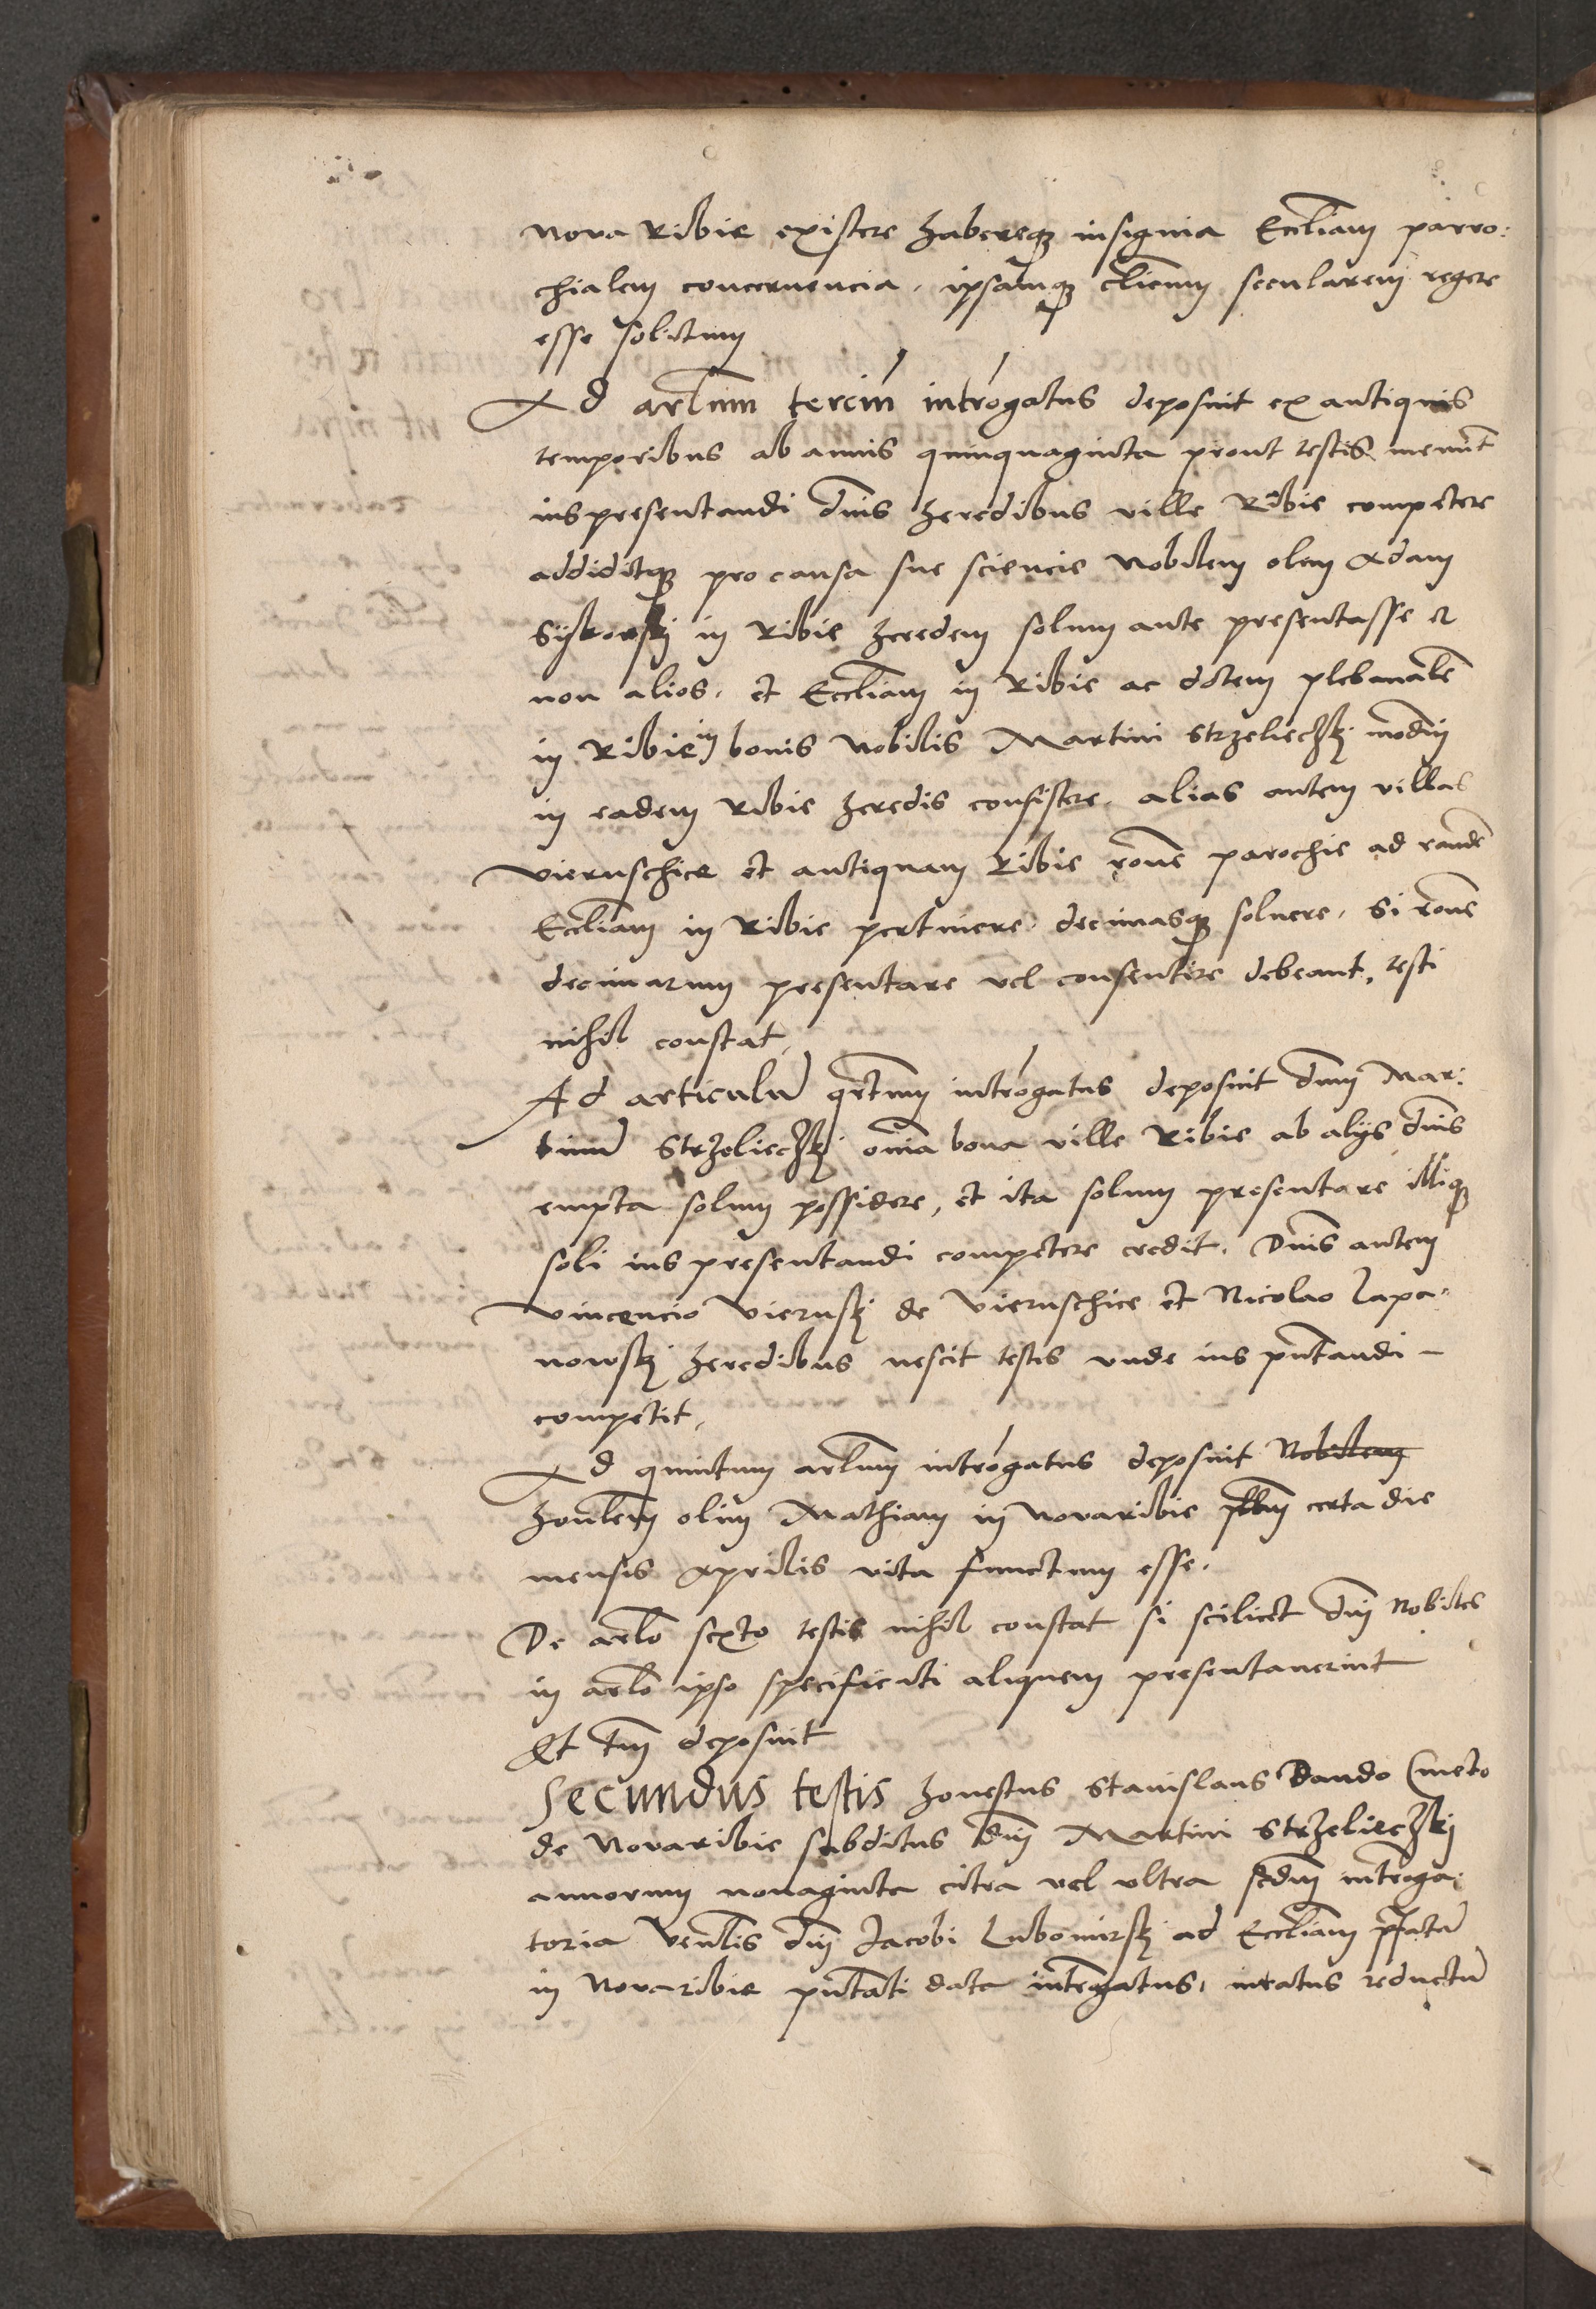 Nova Ribie existere habereq; insignia Eccliam parro:
chialem concernencia. ipsamq; cliemu secularem regere
esse solitum
Ad arlum terciu introgatus deposuit ex antiquis
temporibus ab annis quinquaginta prout testis meunt
ius presentandi dnis heredibus ville Ribie competere
addiditq; pro causa sue sciencie Nobilem olem Adam
in Ribie heredem solum ante presentasse et
non alios. et Eccliam in Ribie ac dotem plebanale
in Ribie in bonis Nobilis Martini Strzelieczskj modni
in eadem Ribie heredis consistere. alias autem villas
Vieruschice et antiquam Ribie rone parochie ad eande
Eccliam in Ribie pertinere. decimasq; soluere. Si rone
decimarum presentare vel consentire debeant, testi
nihil constat,
Ad articulu qrtum introgatus deposuit dnm Mar:
tinu Strzelieczskj omnia bona ville Ribie ab alijs dnis
empta solum possidere, et ita solum presentare illiq;
soli ius presentandi competere credit. Dnis autem
Vincencio Vieruskj de Vieruschice et Nicolao Lapa:
nowskj heredibus nescit testis unde ius pntandi -
competit,
Ad quintum arlum introgatus deposuit Nobilem
honlem olim Mathiam in Novaribie plbm certa die
mensis Aprilis vita functum esse.
De arlo sexto testis nihil constat si scilicet dni Nobiles
in arlo ipso specificati aliquem presentauerint
Et tm deposuit
Secundus testis honestus Stanislaus Dando Cmeto
de Novaribie subditus dni Martini Strzelieczskj
annorum nonaginta citra vel ultra scdm introga:
toria Venlis dni Jacobi Lubomirskj ad Eccliam pfatu
in Novaribie pntati data introgatus. iuratus reductu